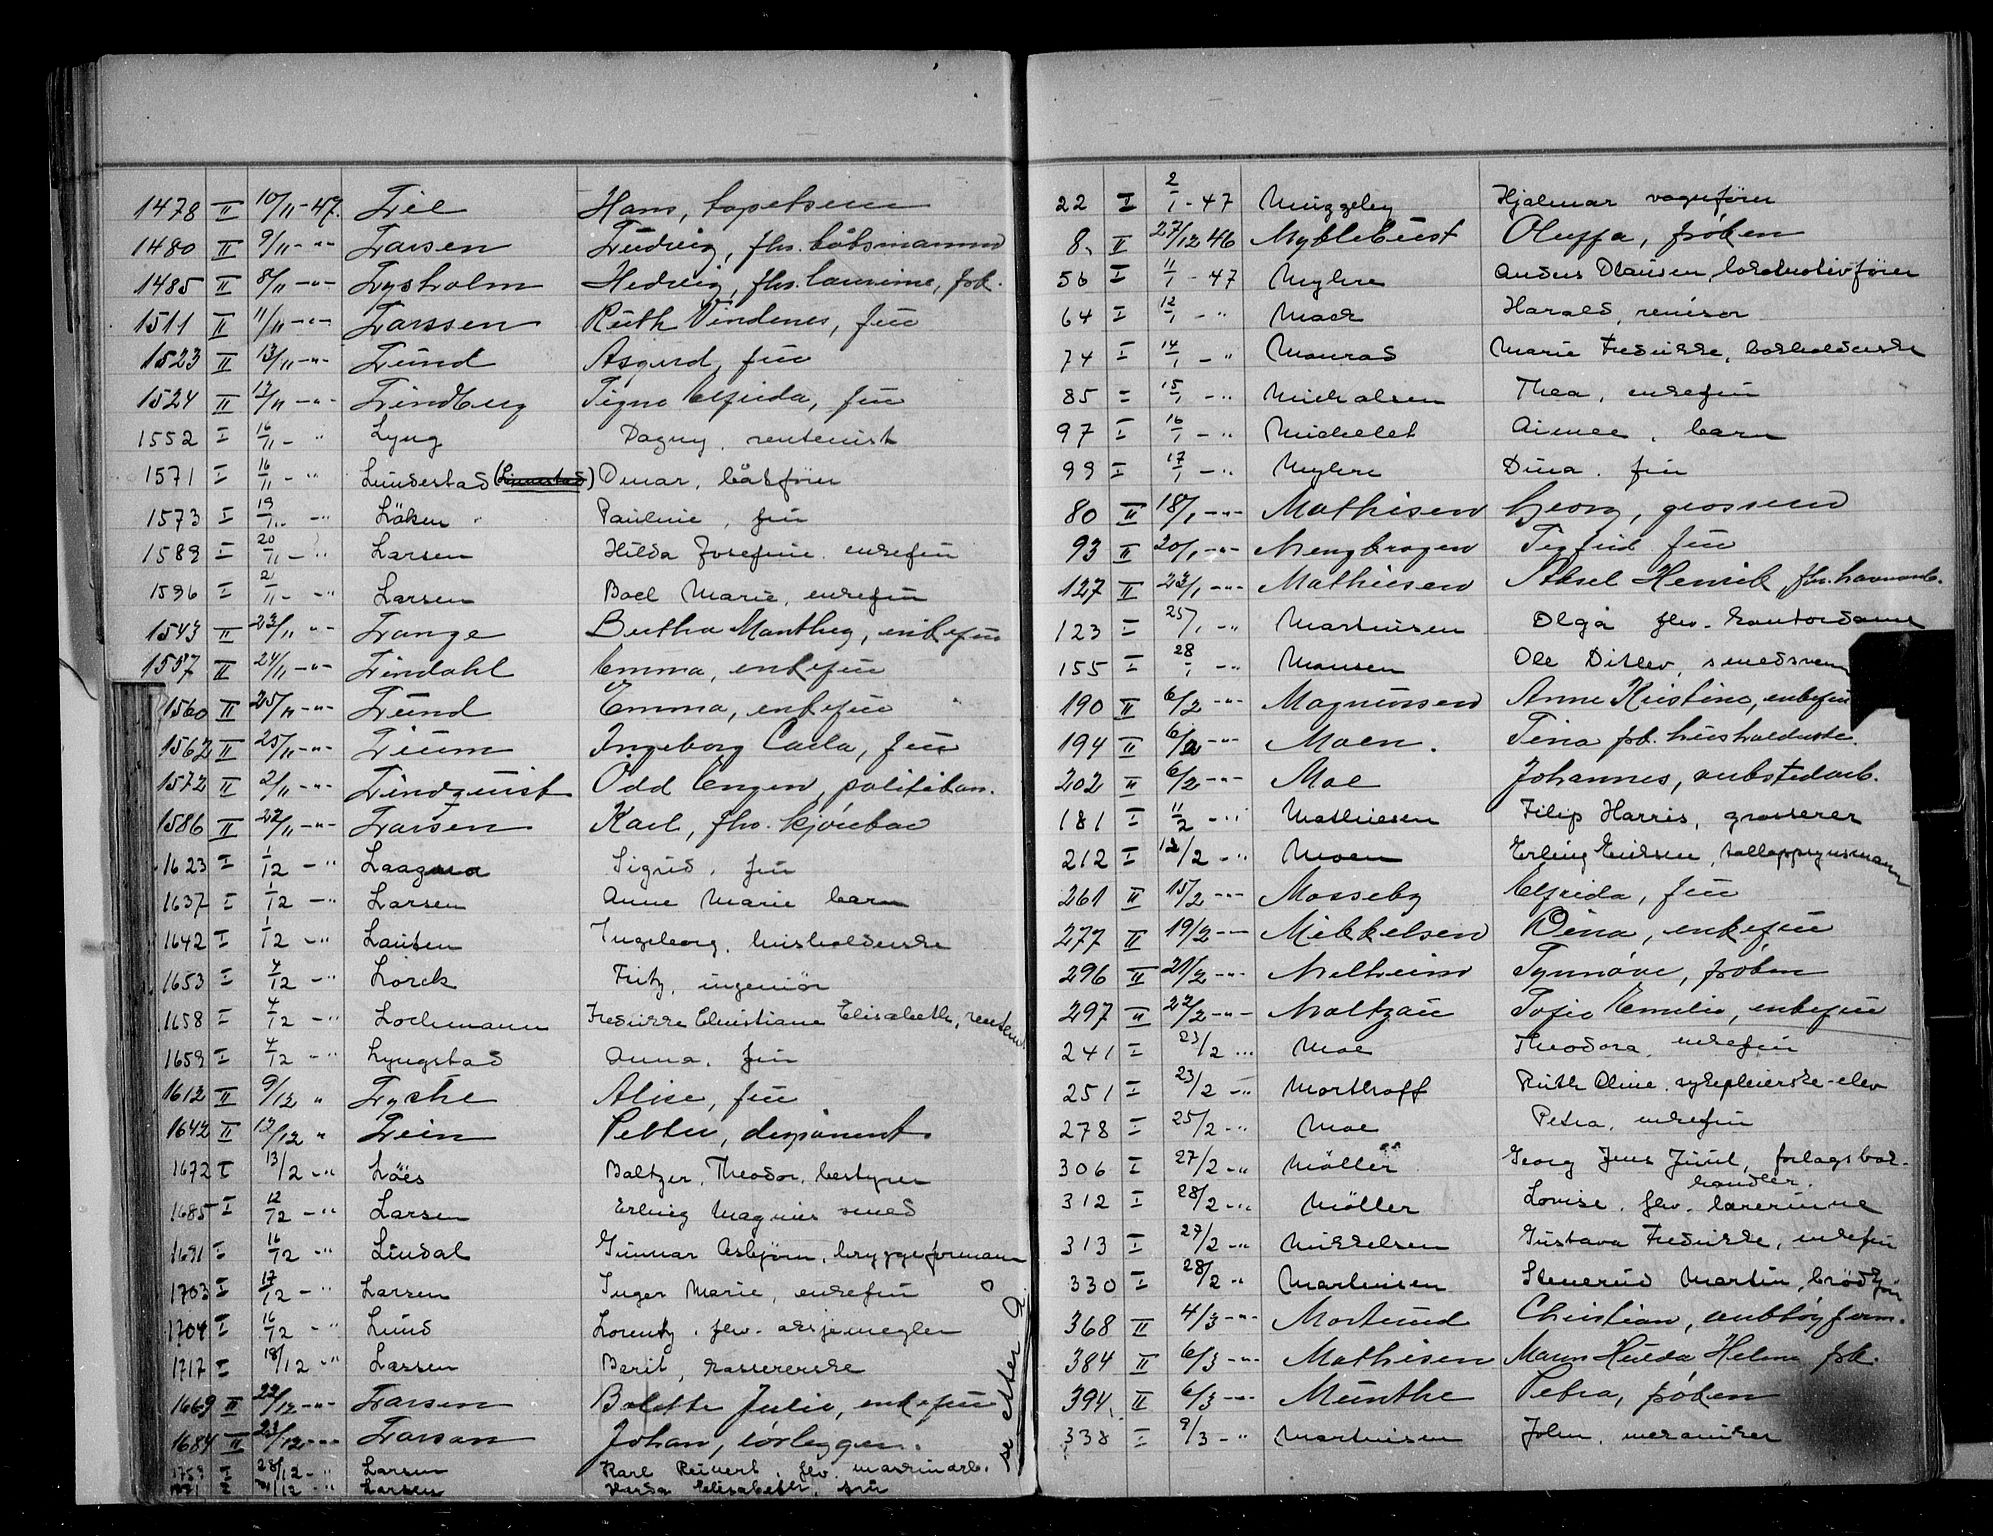 1478 II 10/11-47. Lie Hans, tapetserer
1480 II 9/11-"- Larsen Ludvig, fhv. båtsmann
1485 II 8/11-"- Lysholm Hedvig, fhv. lærerinne, frk.
1511 II 11/11-"- Larssen Ruth Vindenes, frue
1523 II 13/11-"- Lund Asgerd, frue
1524 II 12/11-"- Lindberg Signe Elfrida, frue
1552 I 16/11-" Lyng Dagny, rentenist
1571 I 16/11-" Lundestad (Linnestad) Omar, båtfører
1573 I 19/11-" Løken Pauline, frue
1589 I 20/11-" Larsen Hilda Josefine, enkefru
1596 I 21/11-" Larsen Boel Marie, enkefru
1543 II 23/11-"- Lange Bertha Manthey, enkefru
1557 II 24/11-"- Lindahl Emma, enkefru
1560 II 25/11-"- Lund Emma, enkefru
1562 II 25/11-"- Lium Ingeborg Carla, frue
1572 II 2/11-"- Lindquist Odd Engen, politikon.
1586 II 22/11-"- Larsen Karl, fhv. kjørekar
1623 I 1/12-" Sigrid, fru
1637 I 1/12-" Larsen Anne Marie barn
1642 I 1/12-" Lauten Ingeborg, husholderske
1653 I 4/12-" Lorck Fritz, ingeniør
1658 I 4/12-" Lochmann Fredrikke Christiane Elisabeth, rentenr.
1659 I 4/12-" Lyngstad Anna, fru
1612 II 9/12 " Lyche Alise, frue
1642 II 12/12 " Lein Petter, disponent
1672 I 13/12-" Löes Baltzer, Theodor, bestyrer
1685 I 12/12-" Larsen Erling Magnus smed
1691 I 16/12-" Lindal Gunnar Asbjørn, bryggeformann
1703 I 17/12-" Larsen Inger Marie, enkefru
1704 I 16/12-" Lund Lorentz, fhv. aksjemegler
1717 I 18/12-" Larsen Berit, kassererske
1669 II 22/12-"- Larsen Bolette Julie, enkefrue
1684 II 23/12-"- Larsen Johan, rørlegger.
1759 I 28/12-" Larsen Karl Reinert, fhv. maskinarb.
I /12-" Larsen Elisabeth, fru
se etter Q
22 I 2/1-47 Muggeby Hjalmar vognfører
8. II 27/12 46 Myklebust Oluffa, frøken
56 I 11/1-47 Myhre Anders Olausen, lokomotivfører
64 I 12/1-" Mack Harald, revisor
74 I 14/1-" Monrad Marie Fredrikke, bokholderske
85 I 15/1-" Michalsen Thea, enkefru
97 I 16/1-" Michelet Aimee, barn
99 I 17/1-" Myhre Dina, fru
80 II 18/1-"- Mathisen Georg, grosserer
93 II 20/1-"- Mengbragen Sigfrid frue
127 II 23/1-"- Mathiesen Aksel Henrik, fhv. havnearb.
123 I 25/1-" Martinsen Olga fhv. kontordame
155 I 28/1-" Monsen Ole Ditlev, smedsven
190 II 6/2-"- Magnussen Anne Kristine, enkefru
194 II 6/2-"- Moen. Tina frk. husholderske.
202 II 6/2-"- Moe Johannes, verkstedarb.
181 I 11/2-" Mathiesen Filip Harris, grosserer
212 I 12/2-" Moen Erling Eriksen, tolloppsynsmann
261 II 15/2-"- Mosseby Elfrida, frue
277 II 19/2-"- Mikkelsen Dina, enkefrue
296 II 21/2-"- Melheim Synnøve, frøken
297 II 22/2-"- Moltzau Sofie Emilie, enkefrue
241 I 23/2-" Moe Theodora, enkefru
251 I 23/2-" Morthoff Ruth Oline, sykepleierske-elev
278 I 25/2-" Moe Petra, enkefru
306 I 27/2-" Möller Georg Jens Juul, forlagsbok-
handler.
312 I 28/2-" Möller Lovise, fhv. lærerinne
313 I 27/2-" Mikkelsen Gustava Fredrikke, enkefru
330 I 28/2-" Martinsen Stenerud Martin, brødkj.
368 II 4/3-"- Mortund Christian, verktøyform.
384 II 6/3-"- Mathisen Maren Hulda Helene frk.
394. II 6/3-"- Munthe Petra, frøken
338 I 9/3-" Martinsen John, mekaniker